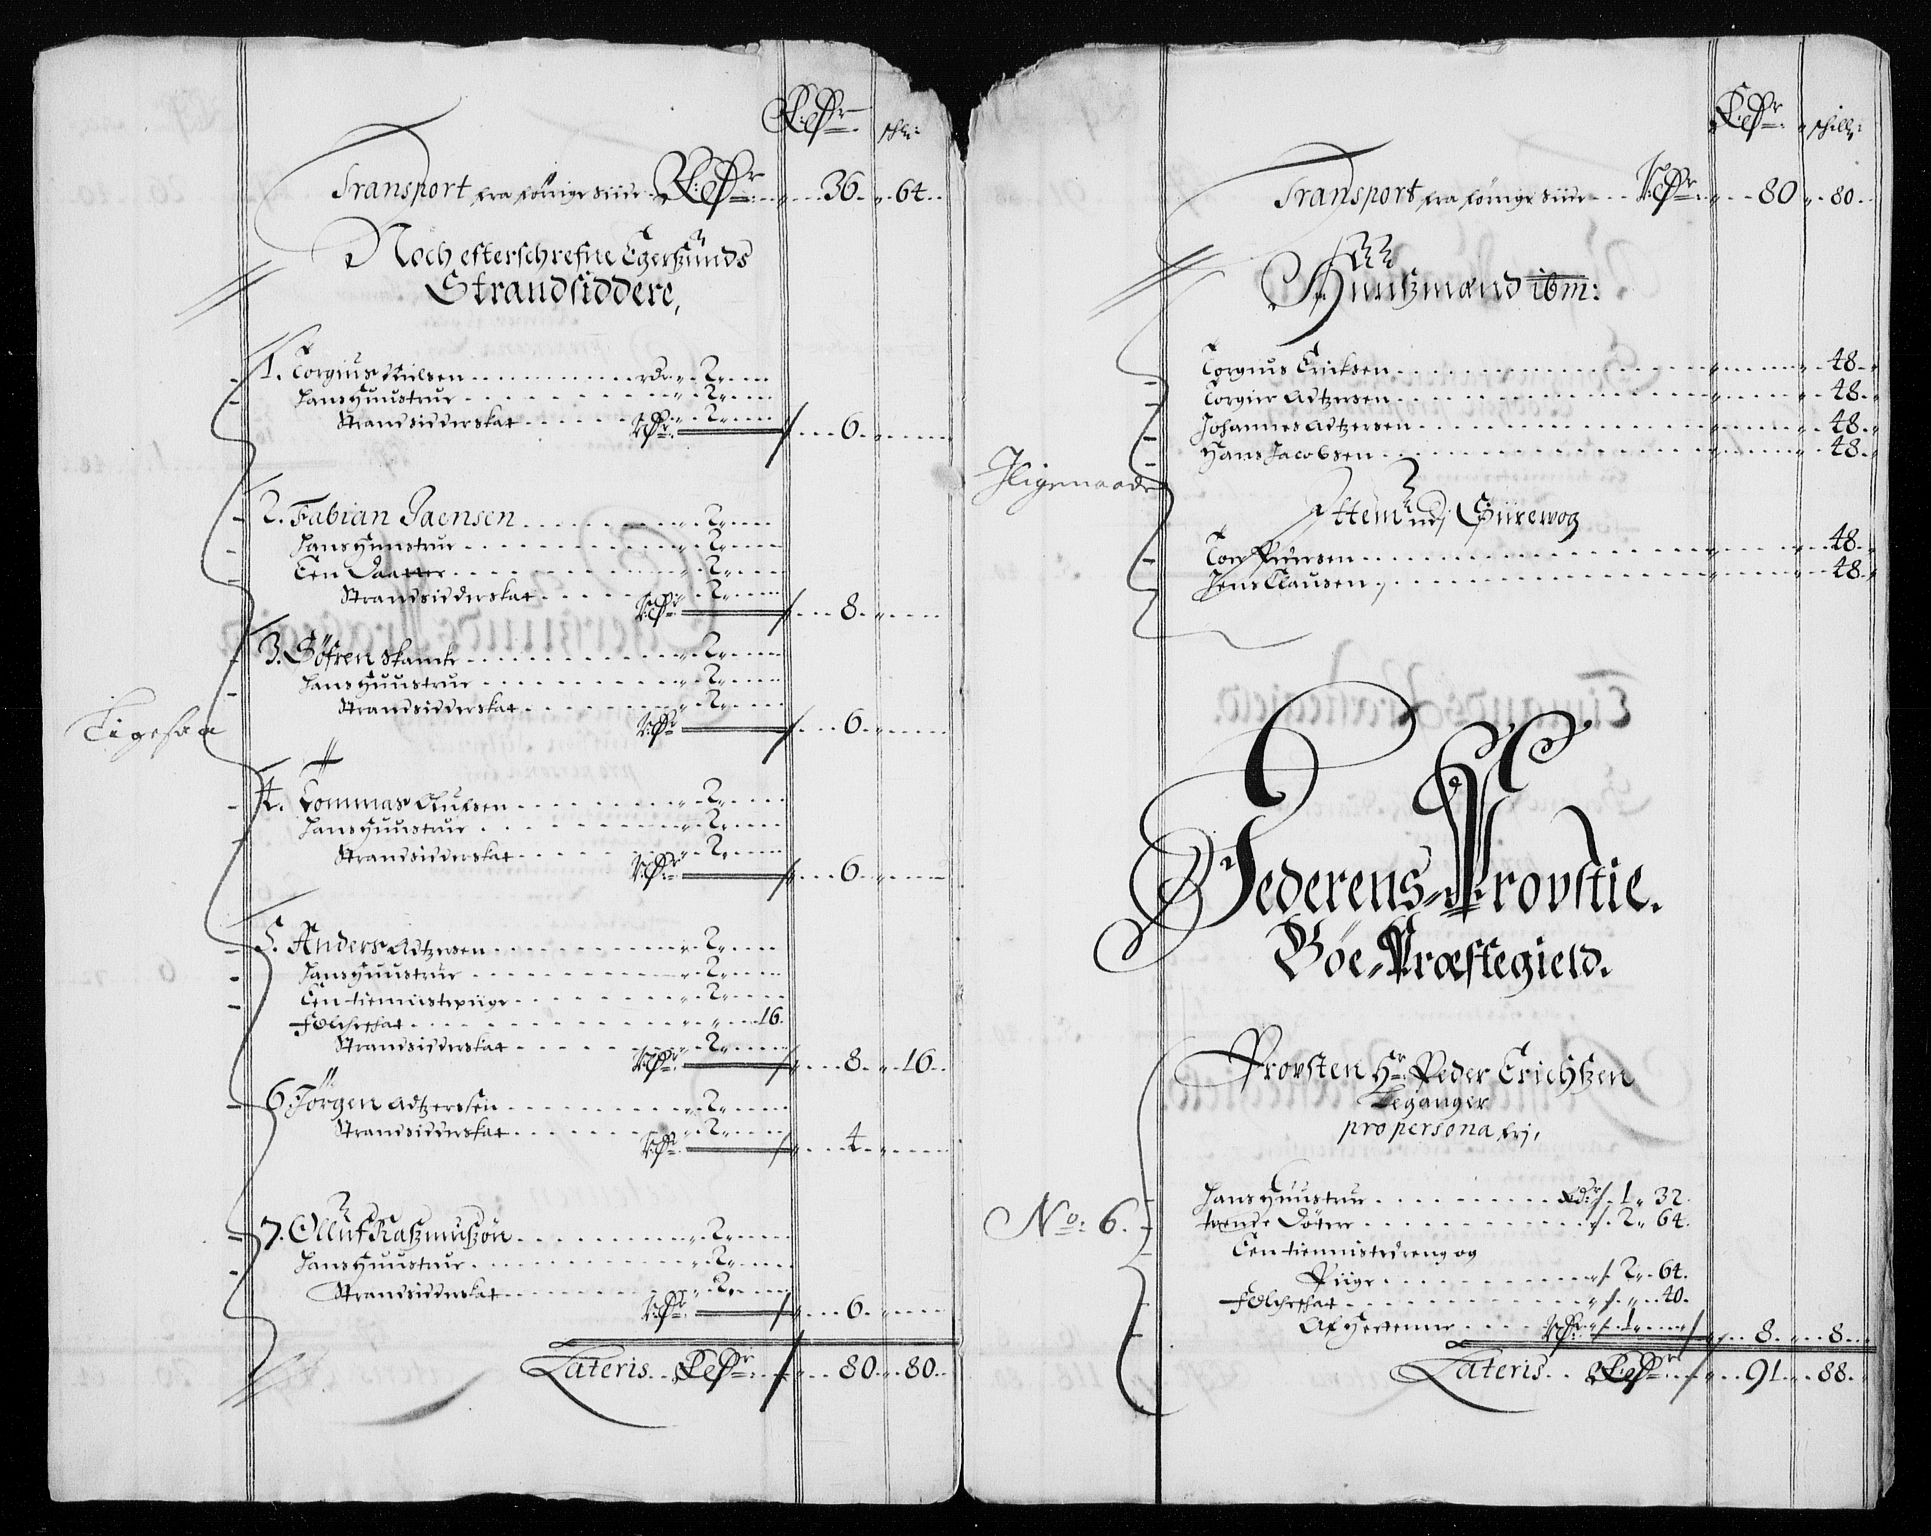 Rdr. schl:
Transport fra forrige Siide Rdr. 36. 64.
Noch efterschrefne Egersunds
Strandsiddere,
1. Torgius Nielsen rdr 2
Hans Huustrue 2
Strandsidderskat 2
Rdr. 6
2. Fabian Jaensen 2
Hans Hunstrue 2
Een Daatter 2
Strandsidderskat 2
Rdr. 8
3. Söfren Skamk 2
Hans Huustrue 2
Strandsidderskat 2
Rdr. 6
Ligesaa
4. Tommas Nielsen 2
Hans Huustrue 2
Strandsidderskat 2
Rdr. 6
5. Anders Adtzersen 2
Hans Huustrue 2
Een tiennistepiige 2
Folcheskat 16.
Strandsidderskat 2
Rdr. 8 16
6. Jörgen Adtzersen 2
Strandsidderskat 2
Rdr. 4
7. Olluf Raszmuszön 2
Hans Huustrue 2
Strandsidderskat 2
Rdr. 6
Lateris Rdr. 80 80
Rdr. schill:
Transport fra forrige Siide Rdr. 80 80
Huuszmænd ibm:
Torgius Ericksen 48
Torgier Adtzersen 48
Johannes Adtzersen 48
Hans Jacobsen 48
Ittem udj Siirewog
Tore Pedersen 48
Jens Clausen 48
Jederens Provstie.
Böe Præstegield.
Provsten Hr. Peder Erichszen
Leganger
pro persona frj,
Hans Huustrue Rdr. 1 32
toende Döttre 2 64.
Een tiennistedreng og
Piige 2 64.
Folcheskat 40.
Af Hesterne 1
No: 6.
Rdr. 8 8
Lateris Rdr. 91 88